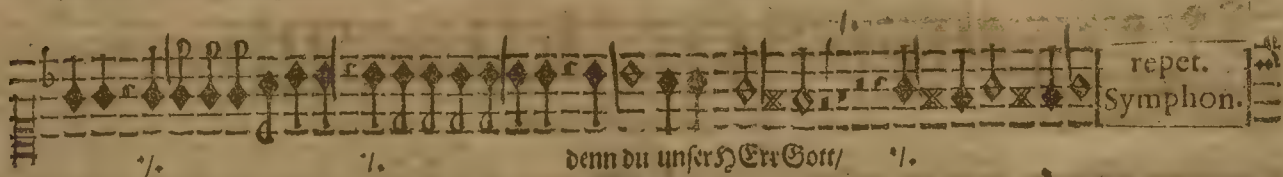 repet.
Symphon.
·/. ·/. denn du unser HErr Gott/ ·/.